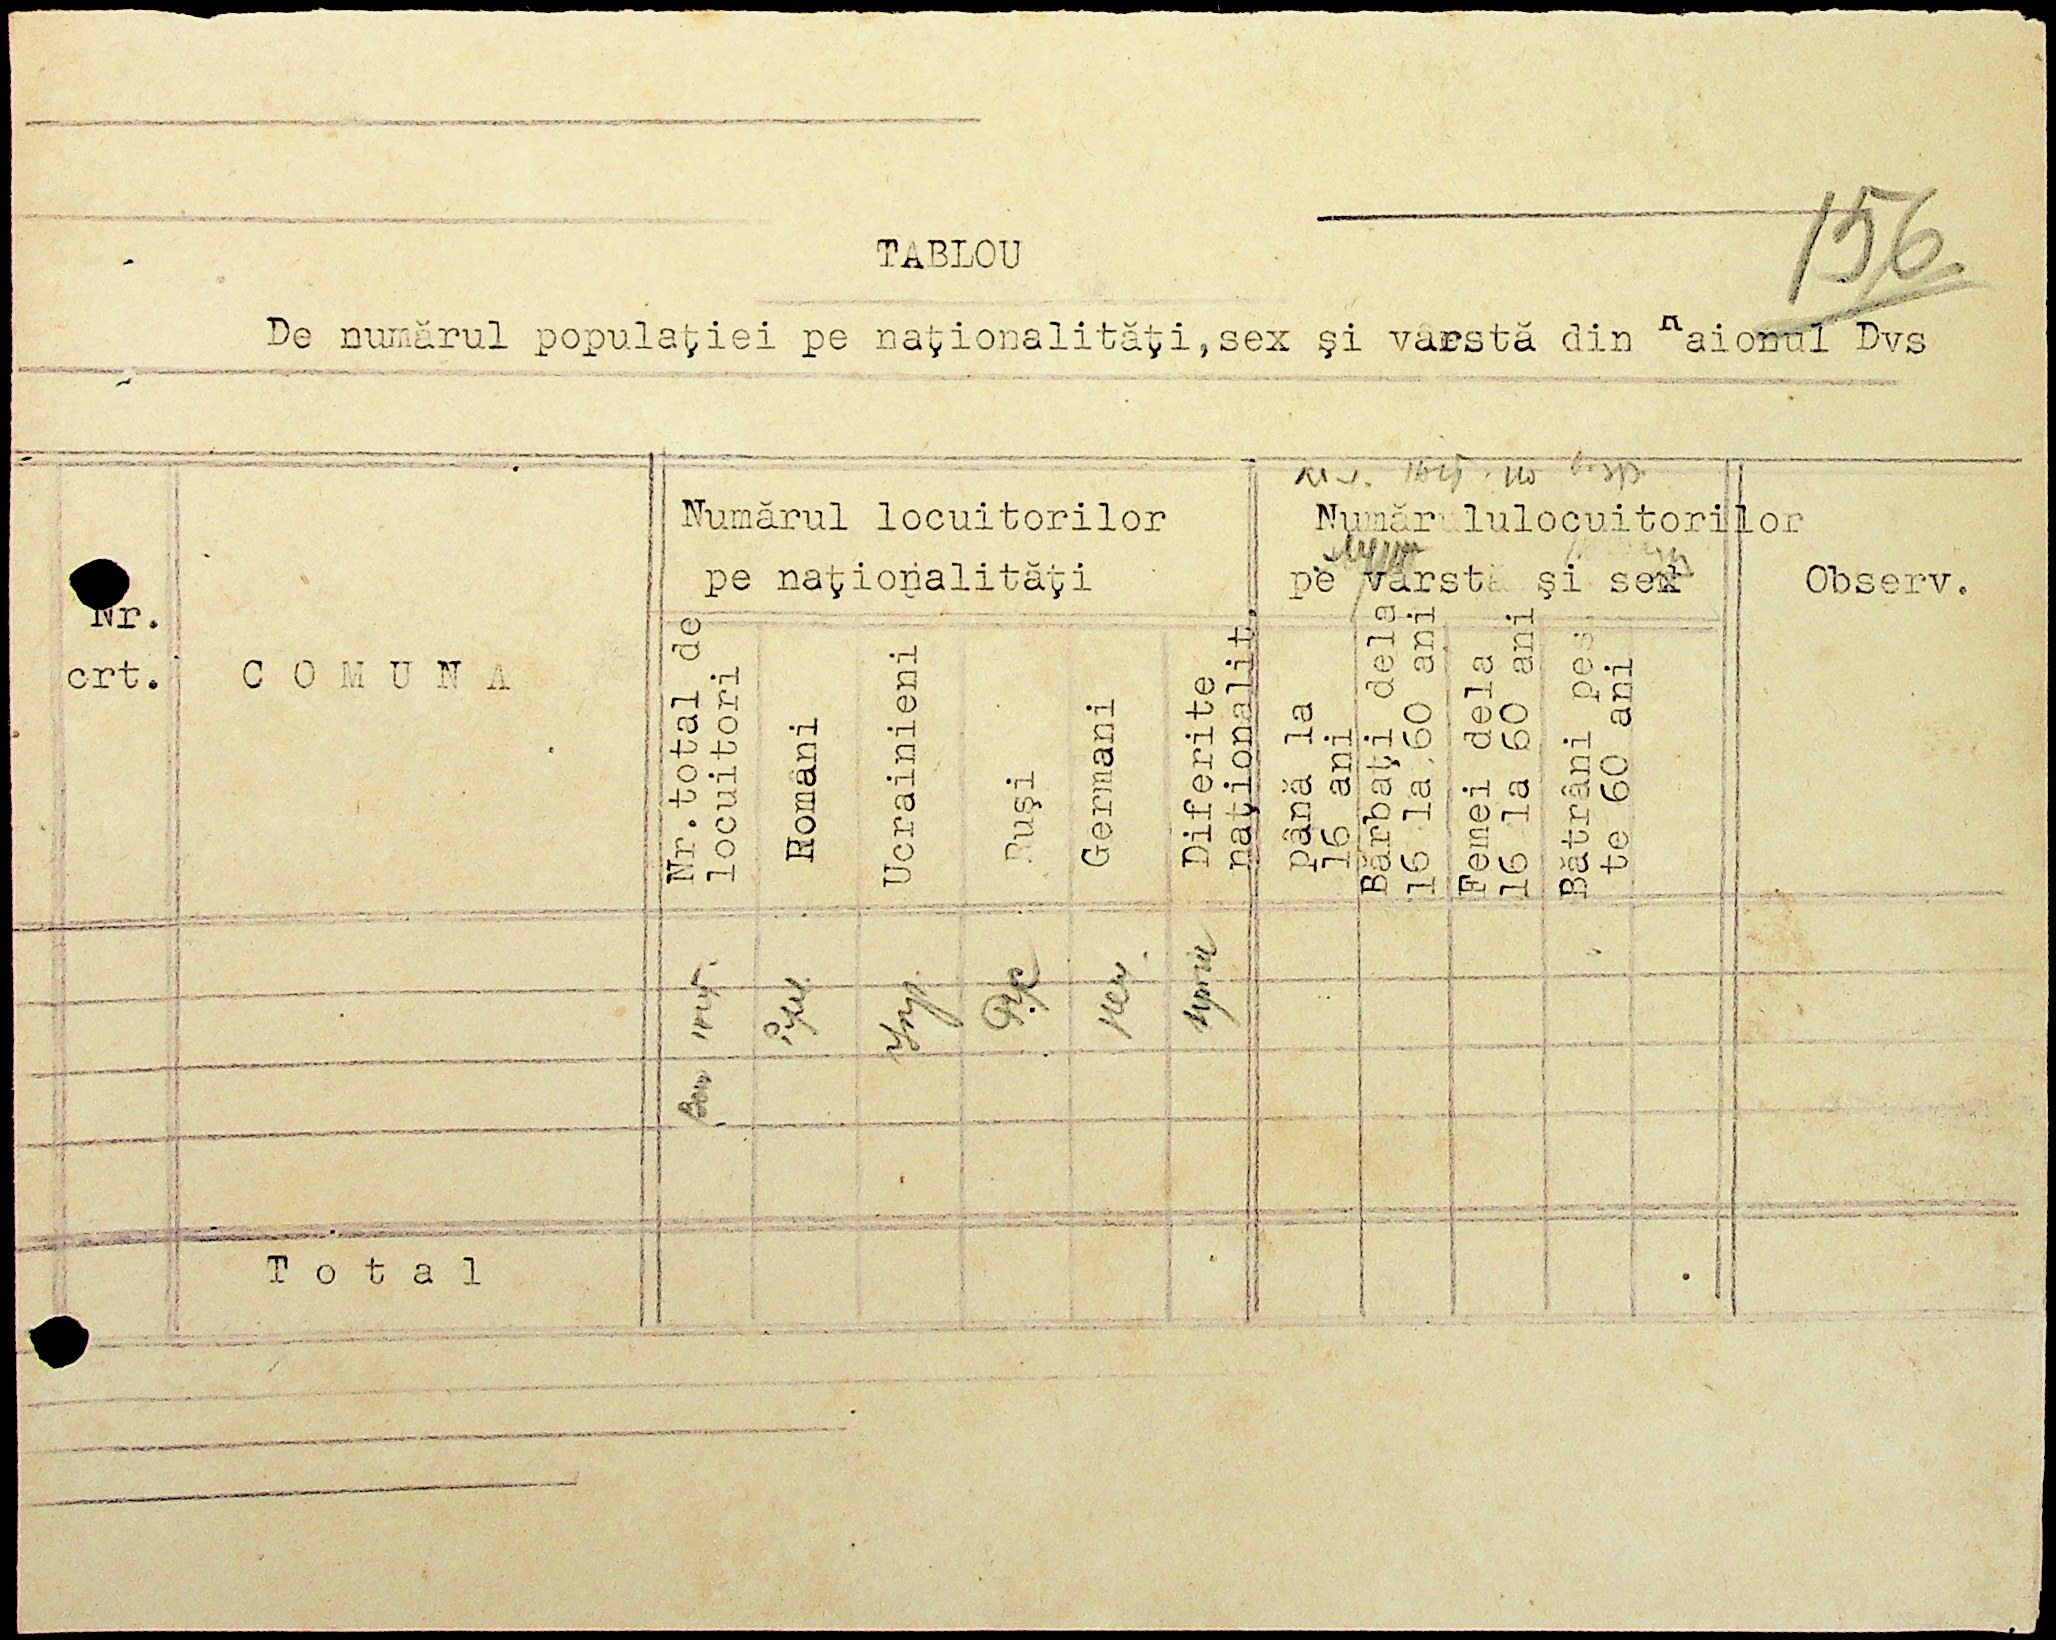 156
TABLOU
De numărul populaţiei pe naţionalităţi,sex şi vârstă din Raionul Dvs
Nr.
crt.
C O M U N A
Numărul locuitorilor
pe naţionalităţi
Nr.total de
locuitori
Români
Ucrainieni
Ruşi
Germani
Diferite
naţionalit.
Numărululocuitorilor
pe vârstă şi sex
până la
16 ani
Bărbaţi dela
16 la 60 ani
Femei dela
16 la 60 ani
Bătrâni pes
te 60 ani
Observ.
Рум.
Укр.
Рус
Нем.
T o t a l